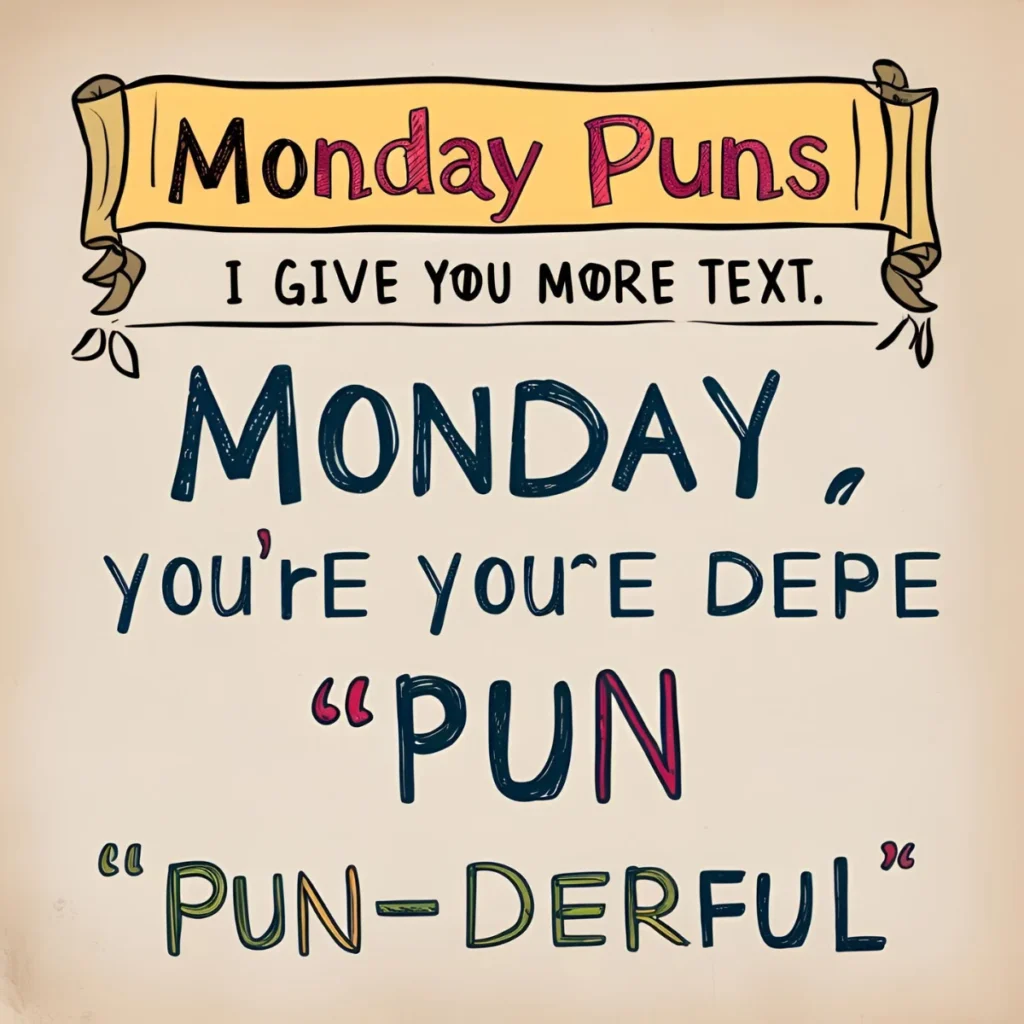 Monday Puns
I GIVE YOU MORE TEXT.
MONDAY,
YOU'rE YOU'E DEPE
“PUN
“PUN-DERFUL”